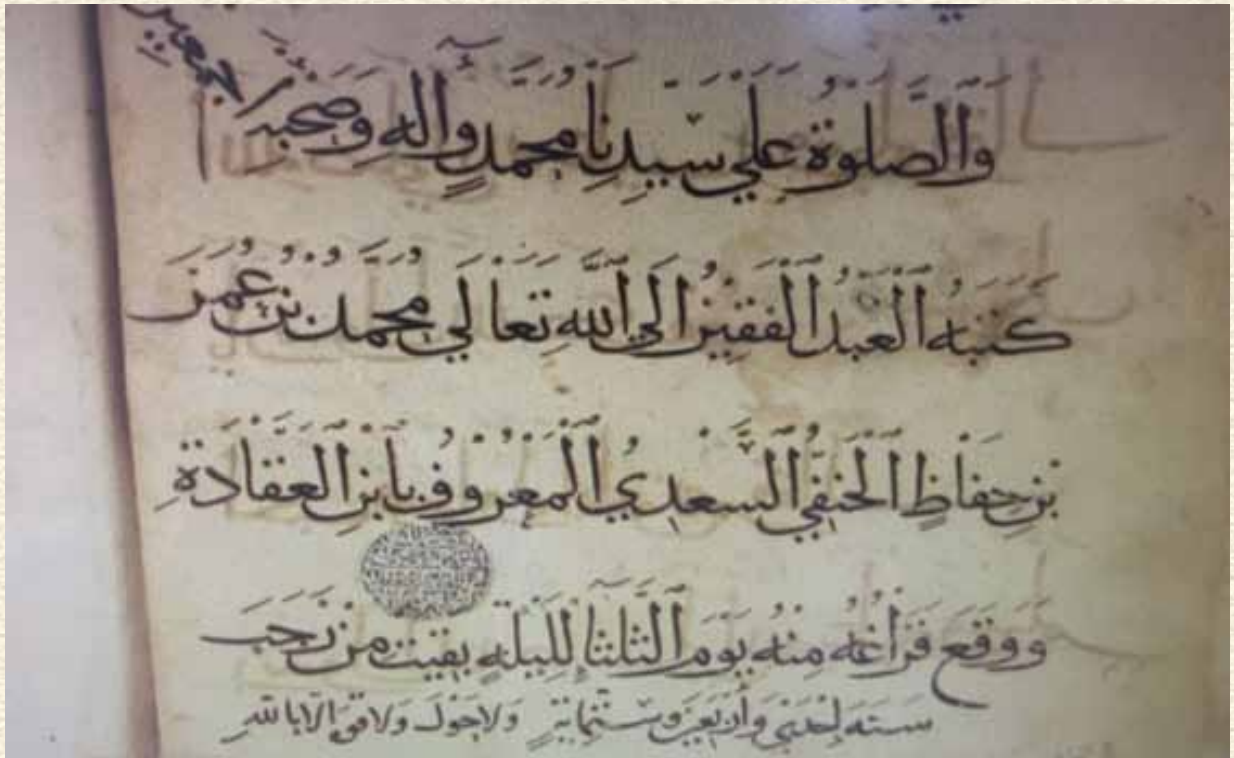 والصلوة على سيدنا محمد وآله وصحبه أجمعين
كتبه العبد الفقير الى الله تعالى محمد بن عمر
بن حفاظ الحنفي السعدي المعروف بابن العقادة
ووقع فراغه منه يوم الثلثا لليلة بقيت من رجب
سنة إحدى وأربعين وستمائة ولا حول ولا قوة إلا بالله